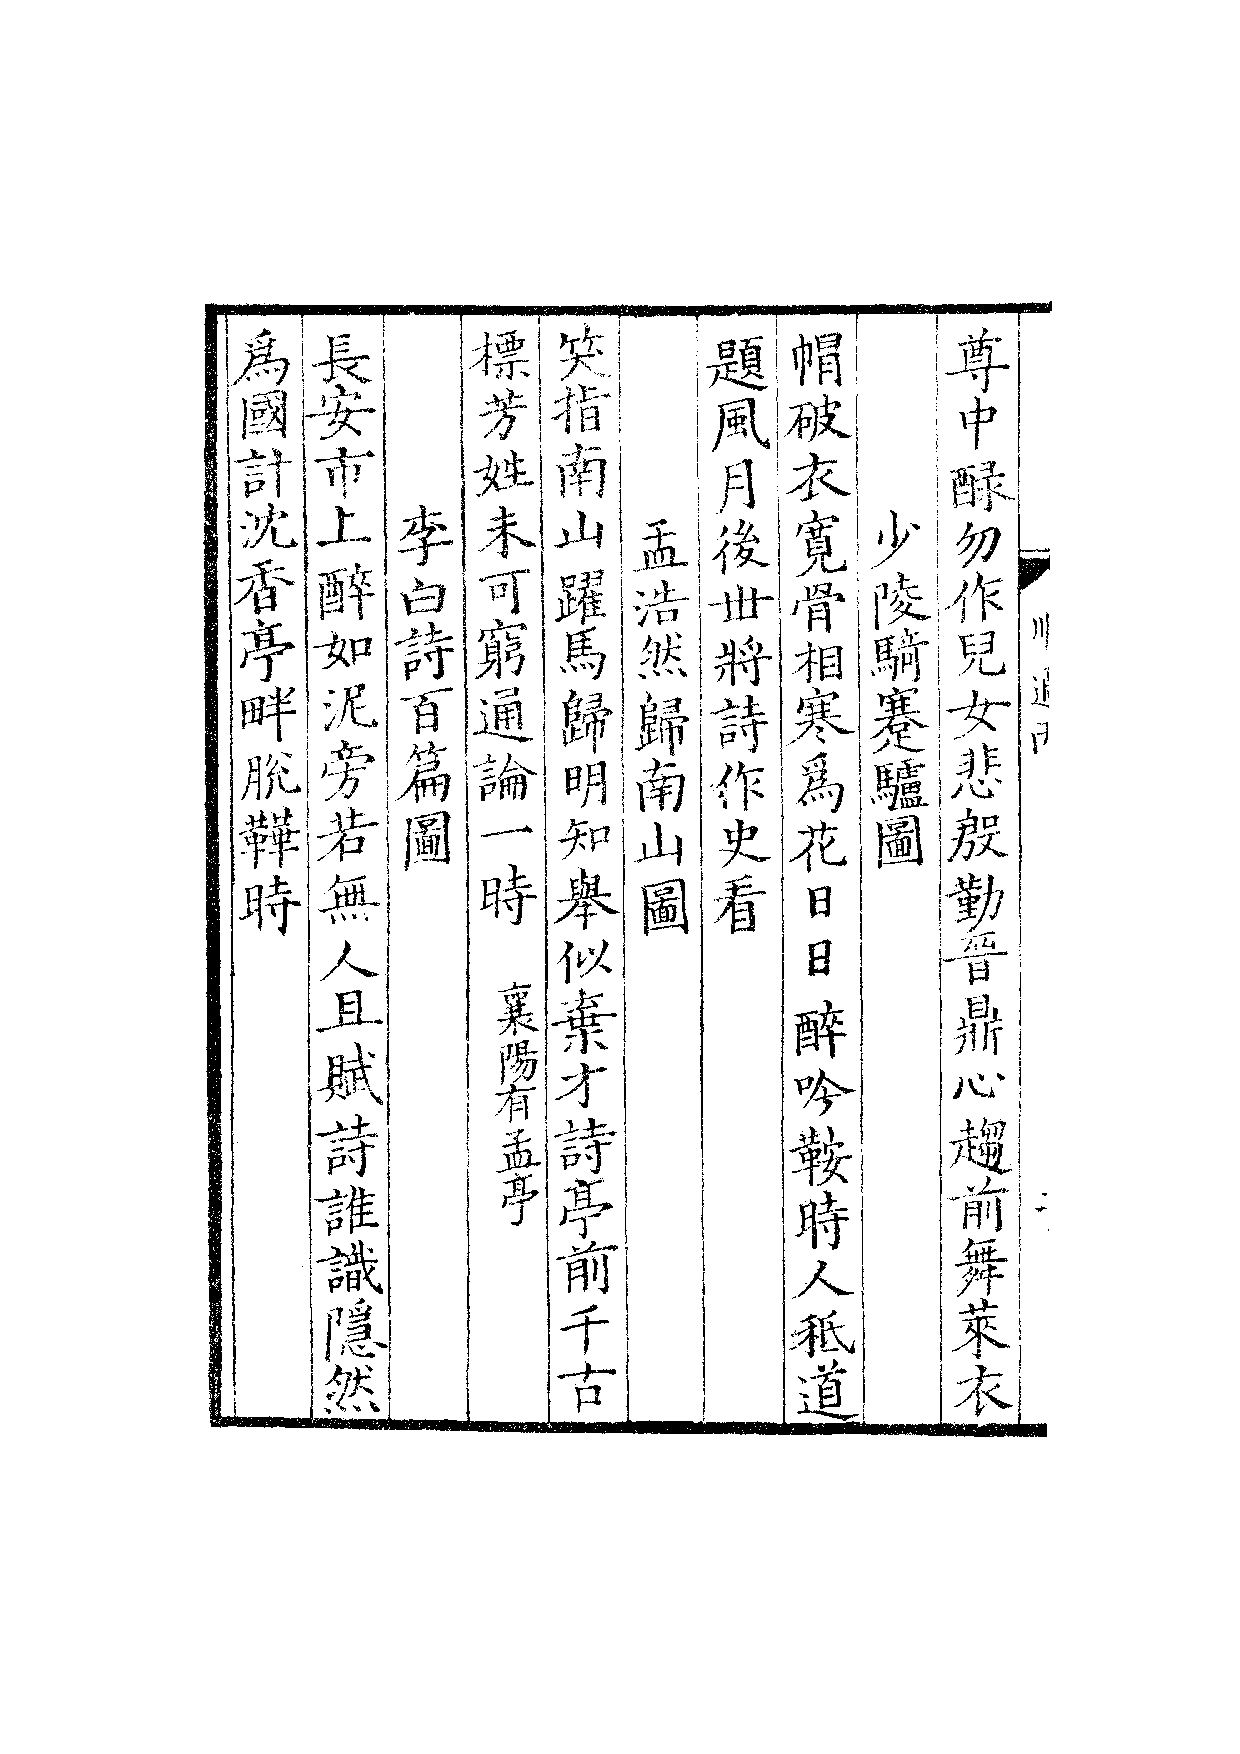 尊中醁勿作兒女悲殷勤晉鼎心趨前舞萊衣
少陵騎蹇驢圖
帽破衣寬骨相寒為花日日醉吟鞍時人秪道
題風月後世將詩作史看
孟浩然歸南山圖
笑指南山躍馬歸明知舉似棄才詩亭前千古
標芳姓未可窮通論一時 襄陽有孟亭
李白詩百篇圖
長安市上醉如泥旁若無人且賦詩誰識隱然
為國計沈香亭畔脫鞾時